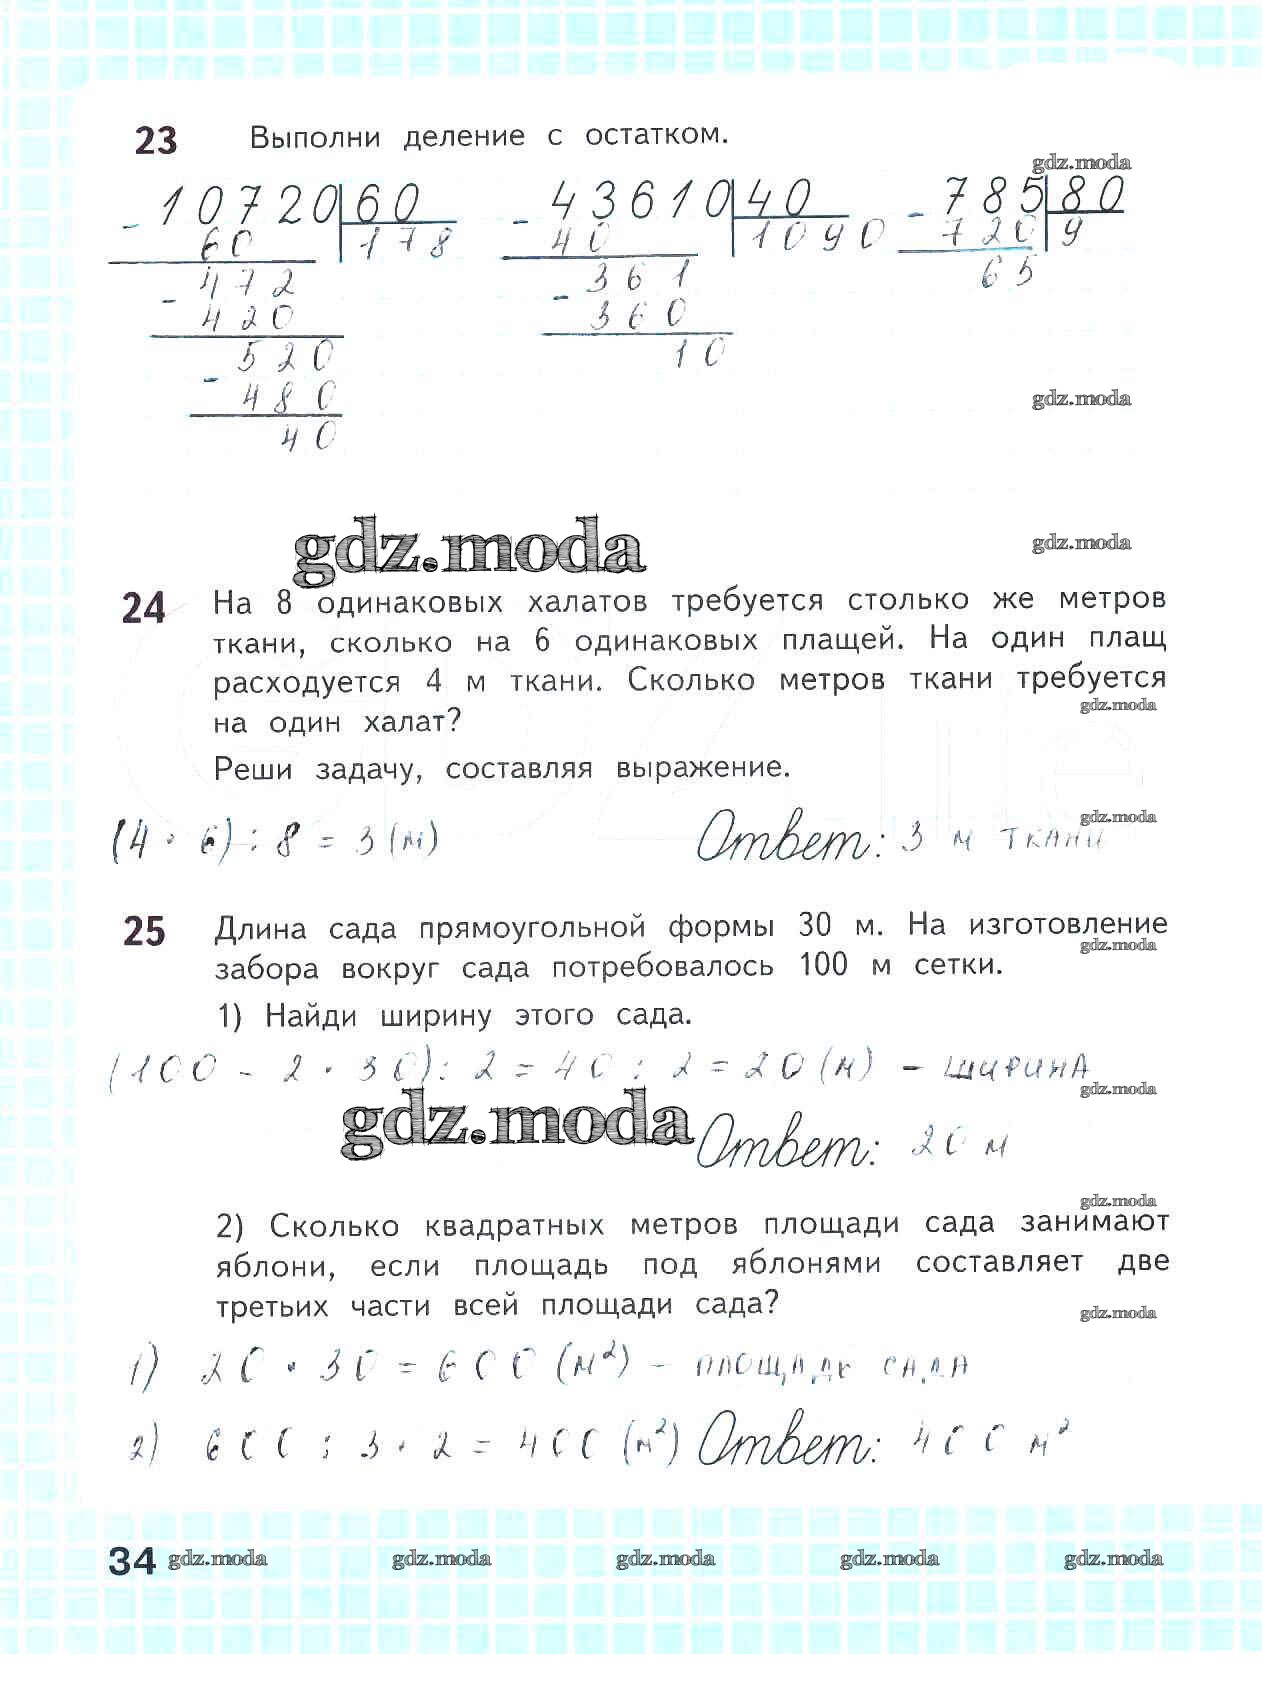 23 Выполни деление с остатком.
gdz.moda
10720 60 43610 40 785 80
60 178 40 1090 720 9
472 361 65
420 360
520 10
480 gdz.moda
40
gdz.moda gdz.moda
24 На 8 одинаковых халатов требуется столько же метров
ткани, сколько на 6 одинаковых плащей. На один плащ
расходуется 4 м ткани. Сколько метров ткани требуется
gdz.moda
на один халат?
Реши задачу, составляя выражение.
gdz.moda
(4 · 6) : 8 = 3 (м) Ответ: 3 м ткани
25 Длина сада прямоугольной формы 30 м. На изготовление
gdz.moda
забора вокруг сада потребовалось 100 м сетки.
1) Найди ширину этого сада.
(100 - 2 · 30) : 2 = 40 : 2 = 20 (м) - ширина
gdz.moda
gdz.moda Ответ: 20 м
gdz.moda
2) Сколько квадратных метров площади сада занимают
яблони, если площадь под яблонями составляет две
третьих части всей площади сада?
gdz.moda
1) 20 · 30 = 600 (м²) - площадь сада
2) 600 : 3 · 2 = 400 (м²) Ответ: 400 м²
34 gdz.moda gdz.moda gdz.moda gdz.moda gdz.moda